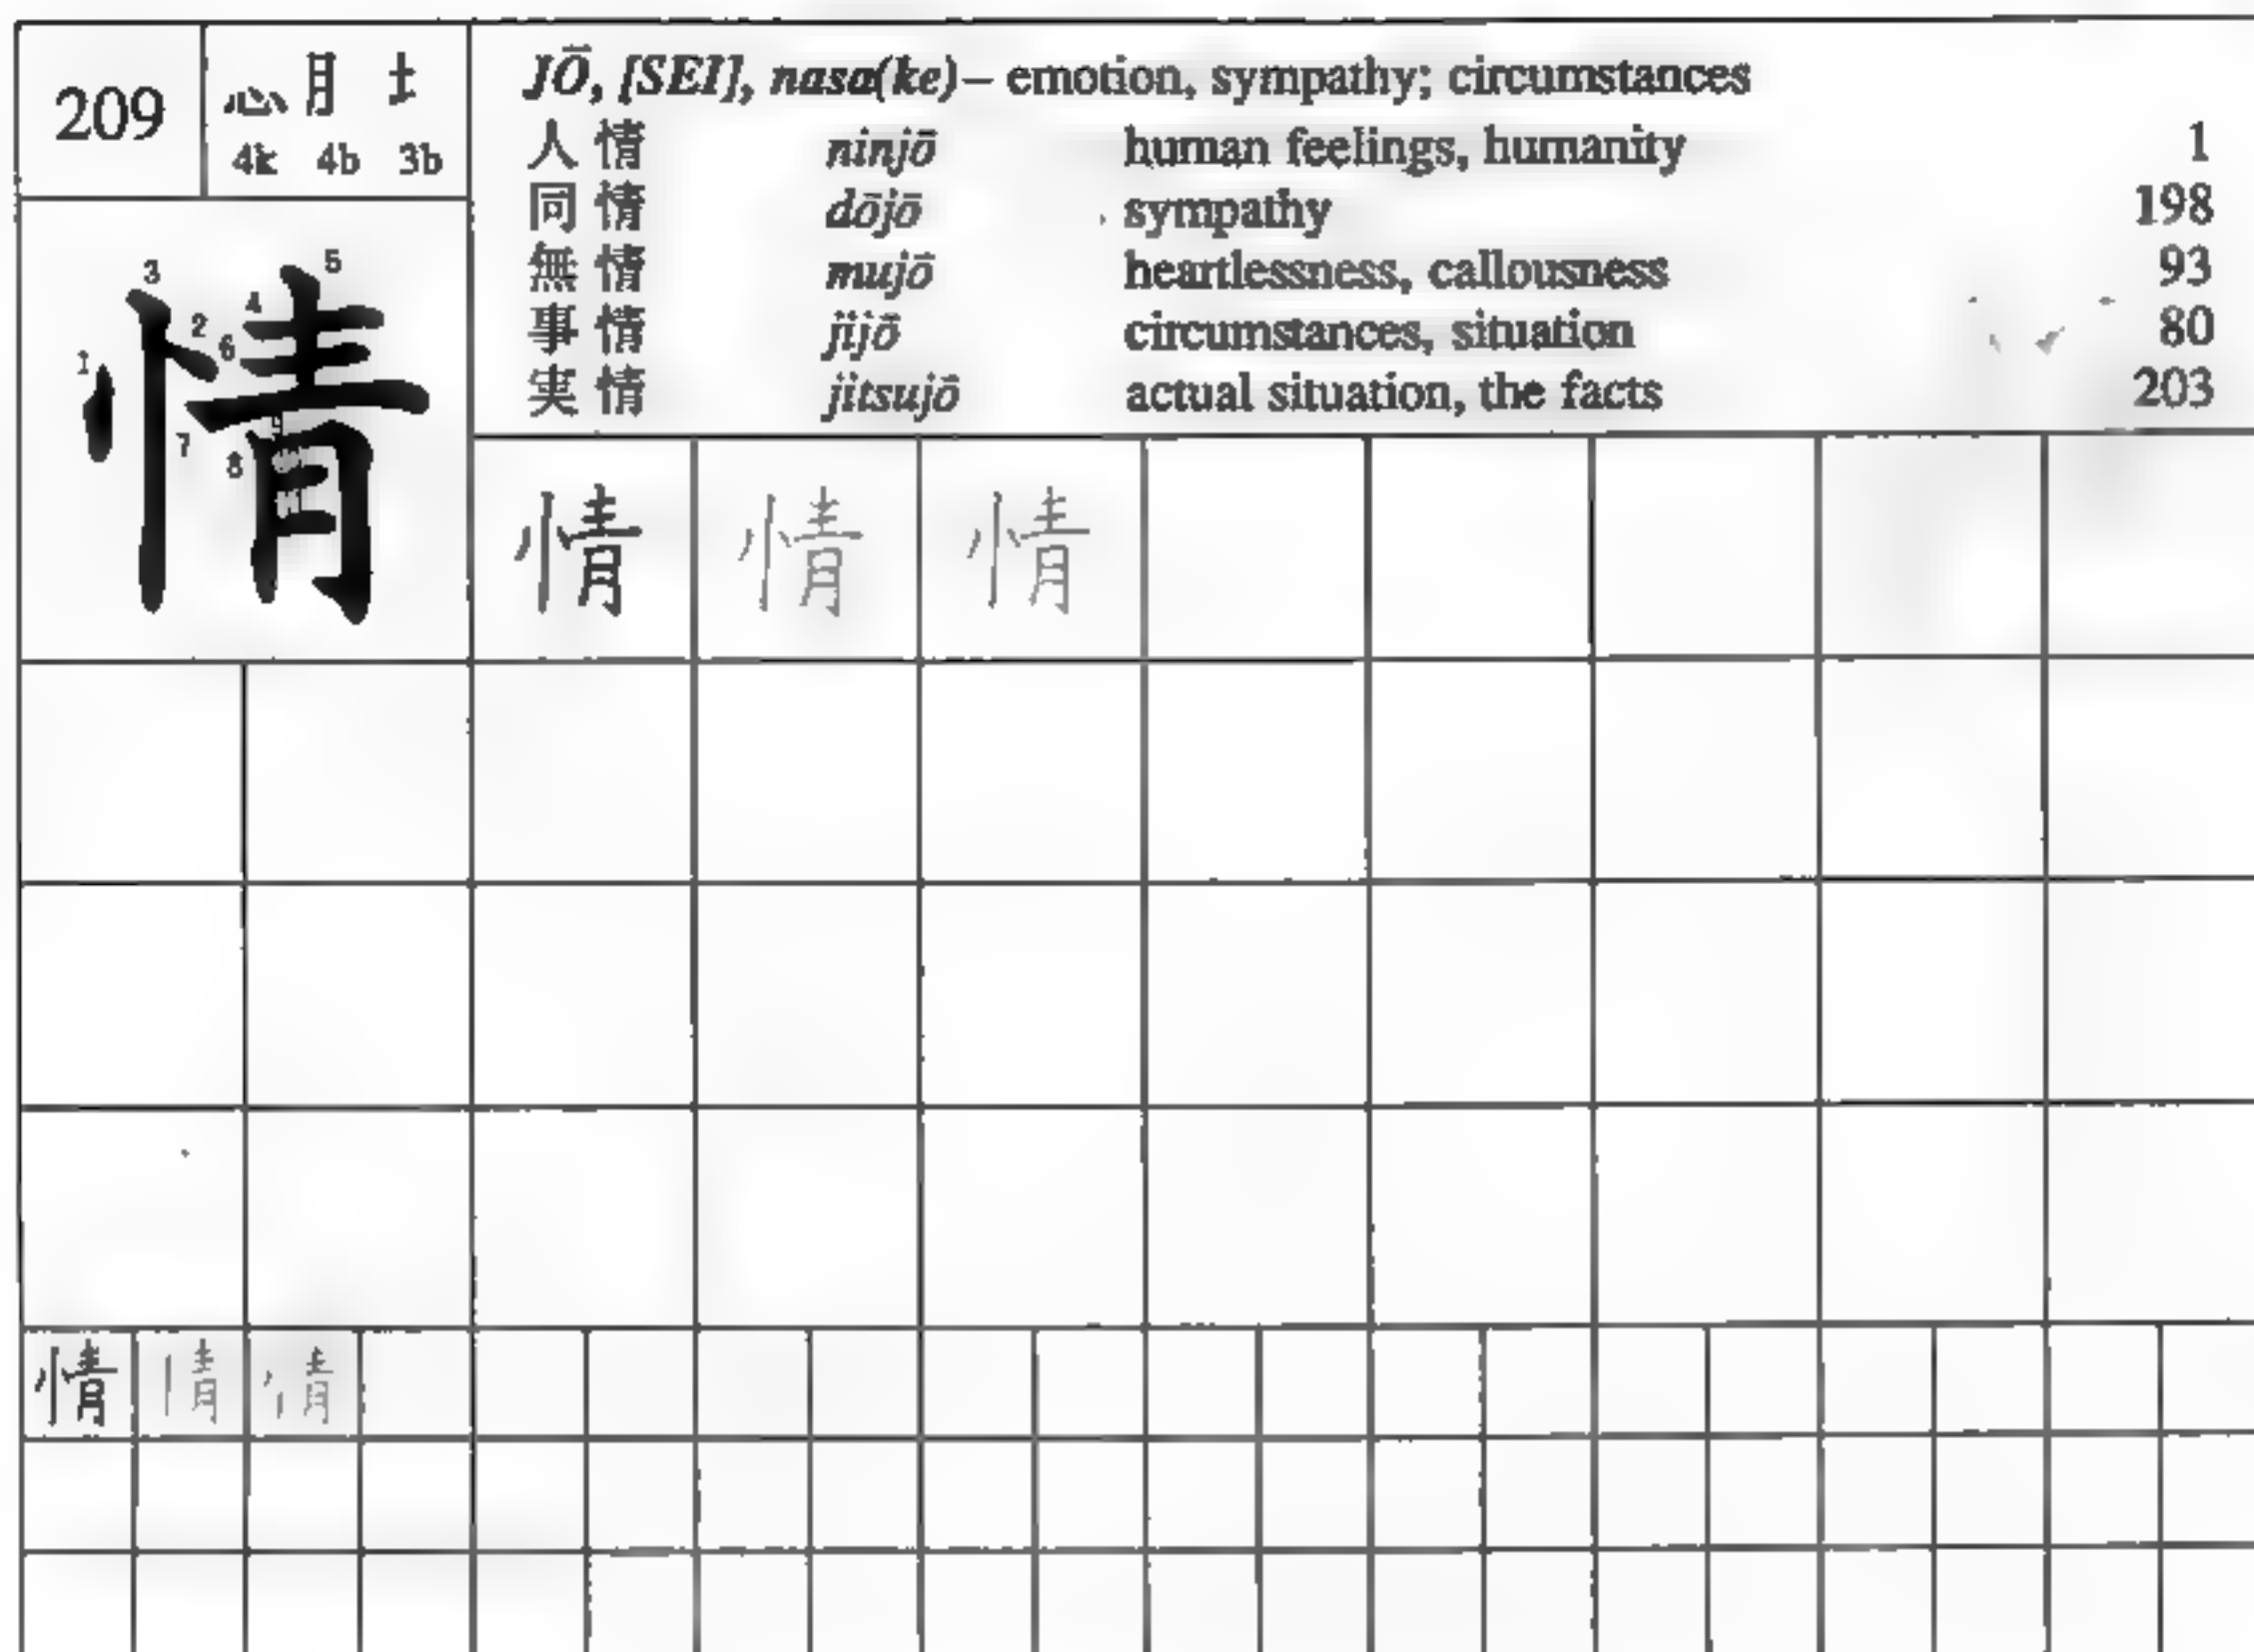 209
心 月 土
4k 4b 3b
JŌ, [SEI], nasa(ke) – emotion, sympathy; circumstances
人情 ninjō human feelings, humanity 1
同情 dōjō sympathy 198
無情 mujō heartlessness, callousness 93
事情 jijō circumstances, situation 80
実情 jitsujō actual situation, the facts 203
情
1 2 3 4 5 6 7 8 9
情 情 情
情 情 情